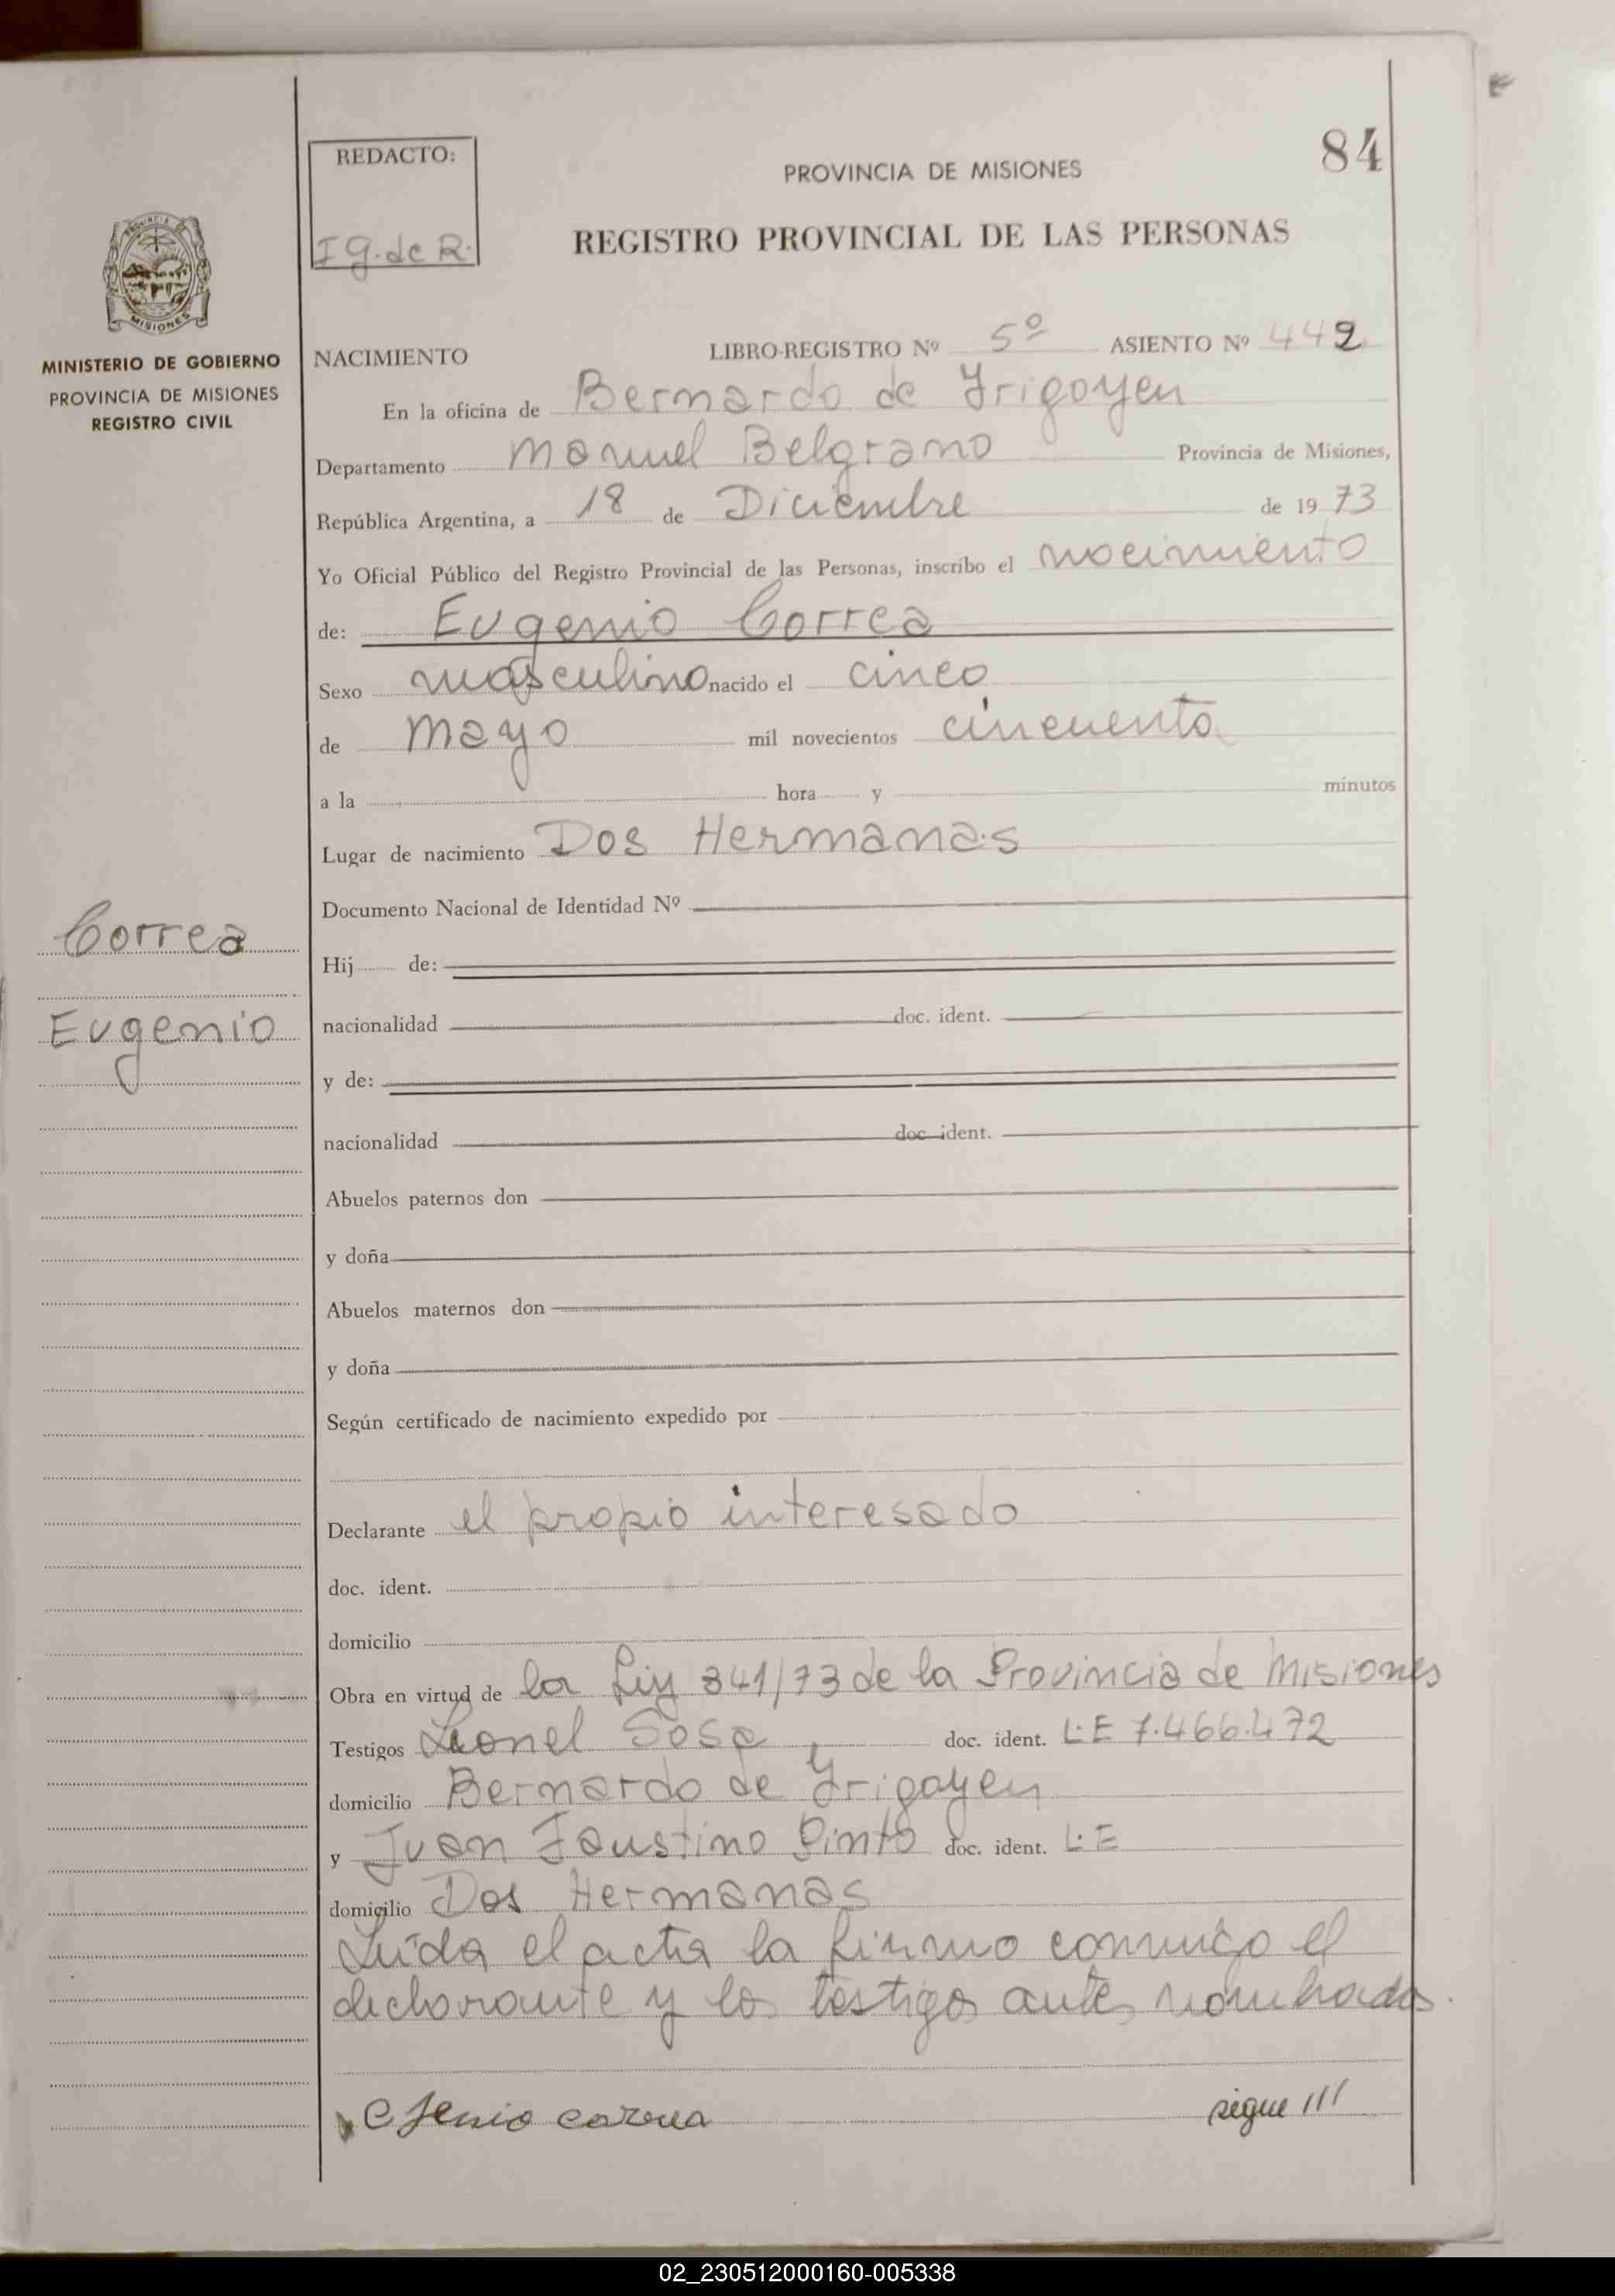 84
REDACTO:
I G. de R.
PROVINCIA DE MISIONES
REGISTRO PROVINCIAL DE LAS PERSONAS
PROVINCIA DE
MISIONES
MINISTERIO DE GOBIERNO
PROVINCIA DE MISIONES
REGISTRO CIVIL
NACIMIENTO LIBRO-REGISTRO Nº 5º ASIENTO Nº 442
En la oficina de Bernardo de Yrigoyen
Departamento Manuel Belgrano Provincia de Misiones,
República Argentina, a 18 de Diciembre de 1973
Yo Oficial Público del Registro Provincial de las Personas, inscribo el nacimiento
de: Eugenio Correa
Sexo masculino nacido el cinco
de mayo mil novecientos cincuenta
a la hora y minutos
Lugar de nacimiento Dos Hermanas
Documento Nacional de Identidad Nº
Correa
Eugenio
Hij de:
nacionalidad doc. ident.
y de:
nacionalidad doc. ident.
Abuelos paternos don
y doña
Abuelos maternos don
y doña
Según certificado de nacimiento expedido por
Declarante el propio interesado
doc. ident.
domicilio
Obra en virtud de la Ley 341/73 de la Provincia de Misiones
Testigos Leonel Sosa doc. ident. L.E 7.466.472
domicilio Bernardo de Yrigoyen
y Juan Faustino Pinto doc. ident. L.E
domicilio Dos Hermanas
Leída el acta la firman conmigo el
declarante y los testigos antes nombrados.
Ejenio correa sigue ///
02_230512000160-005338